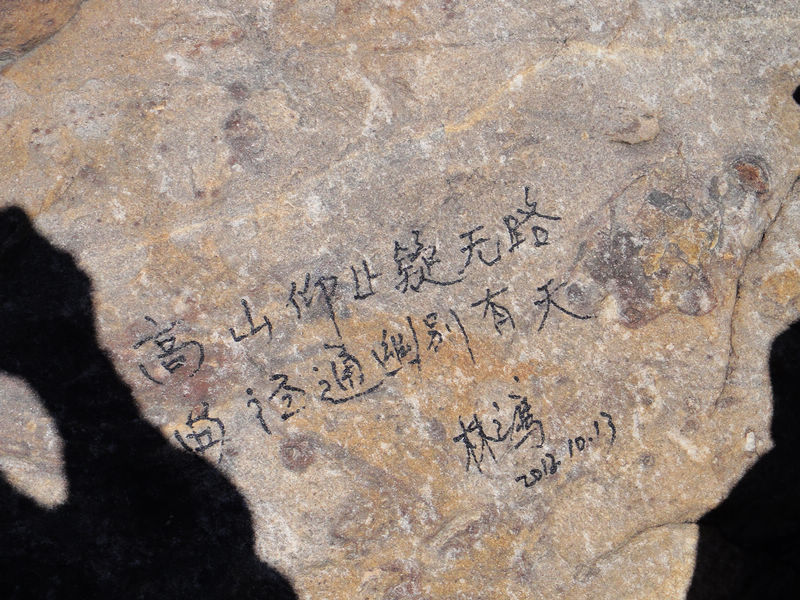 高山仰止疑无路
曲径通幽别有天
林
2012.10.13